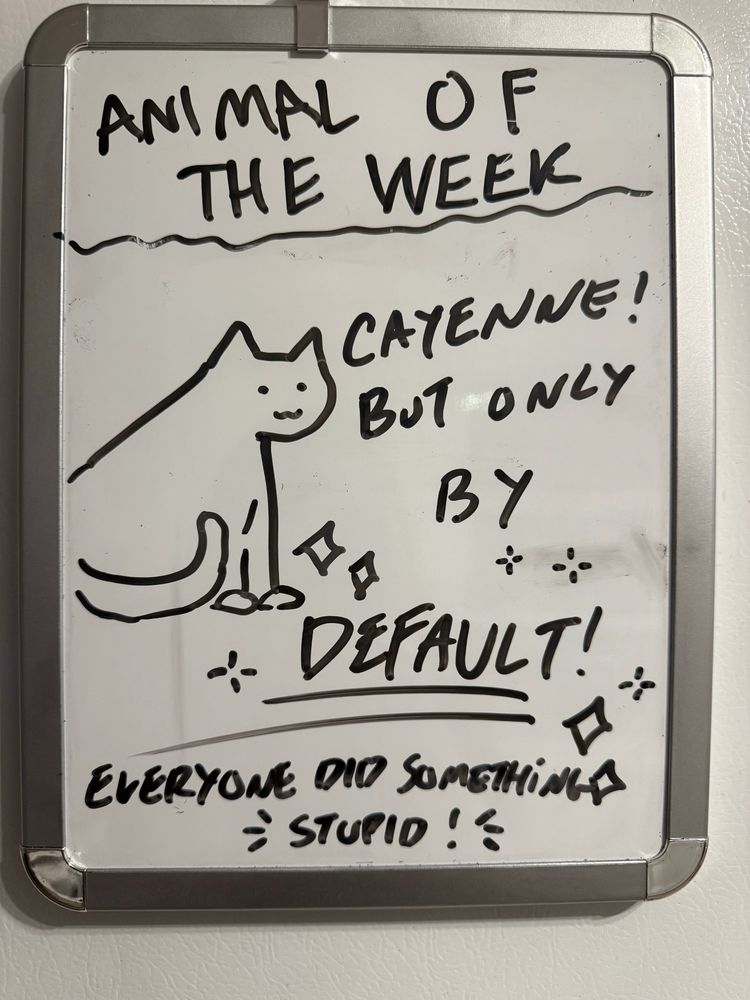 ANIMAL OF
THE WEEK
CAYENNE!
BUT ONLY
BY
DEFAULT!
EVERYONE DID SOMETHING
STUPID!